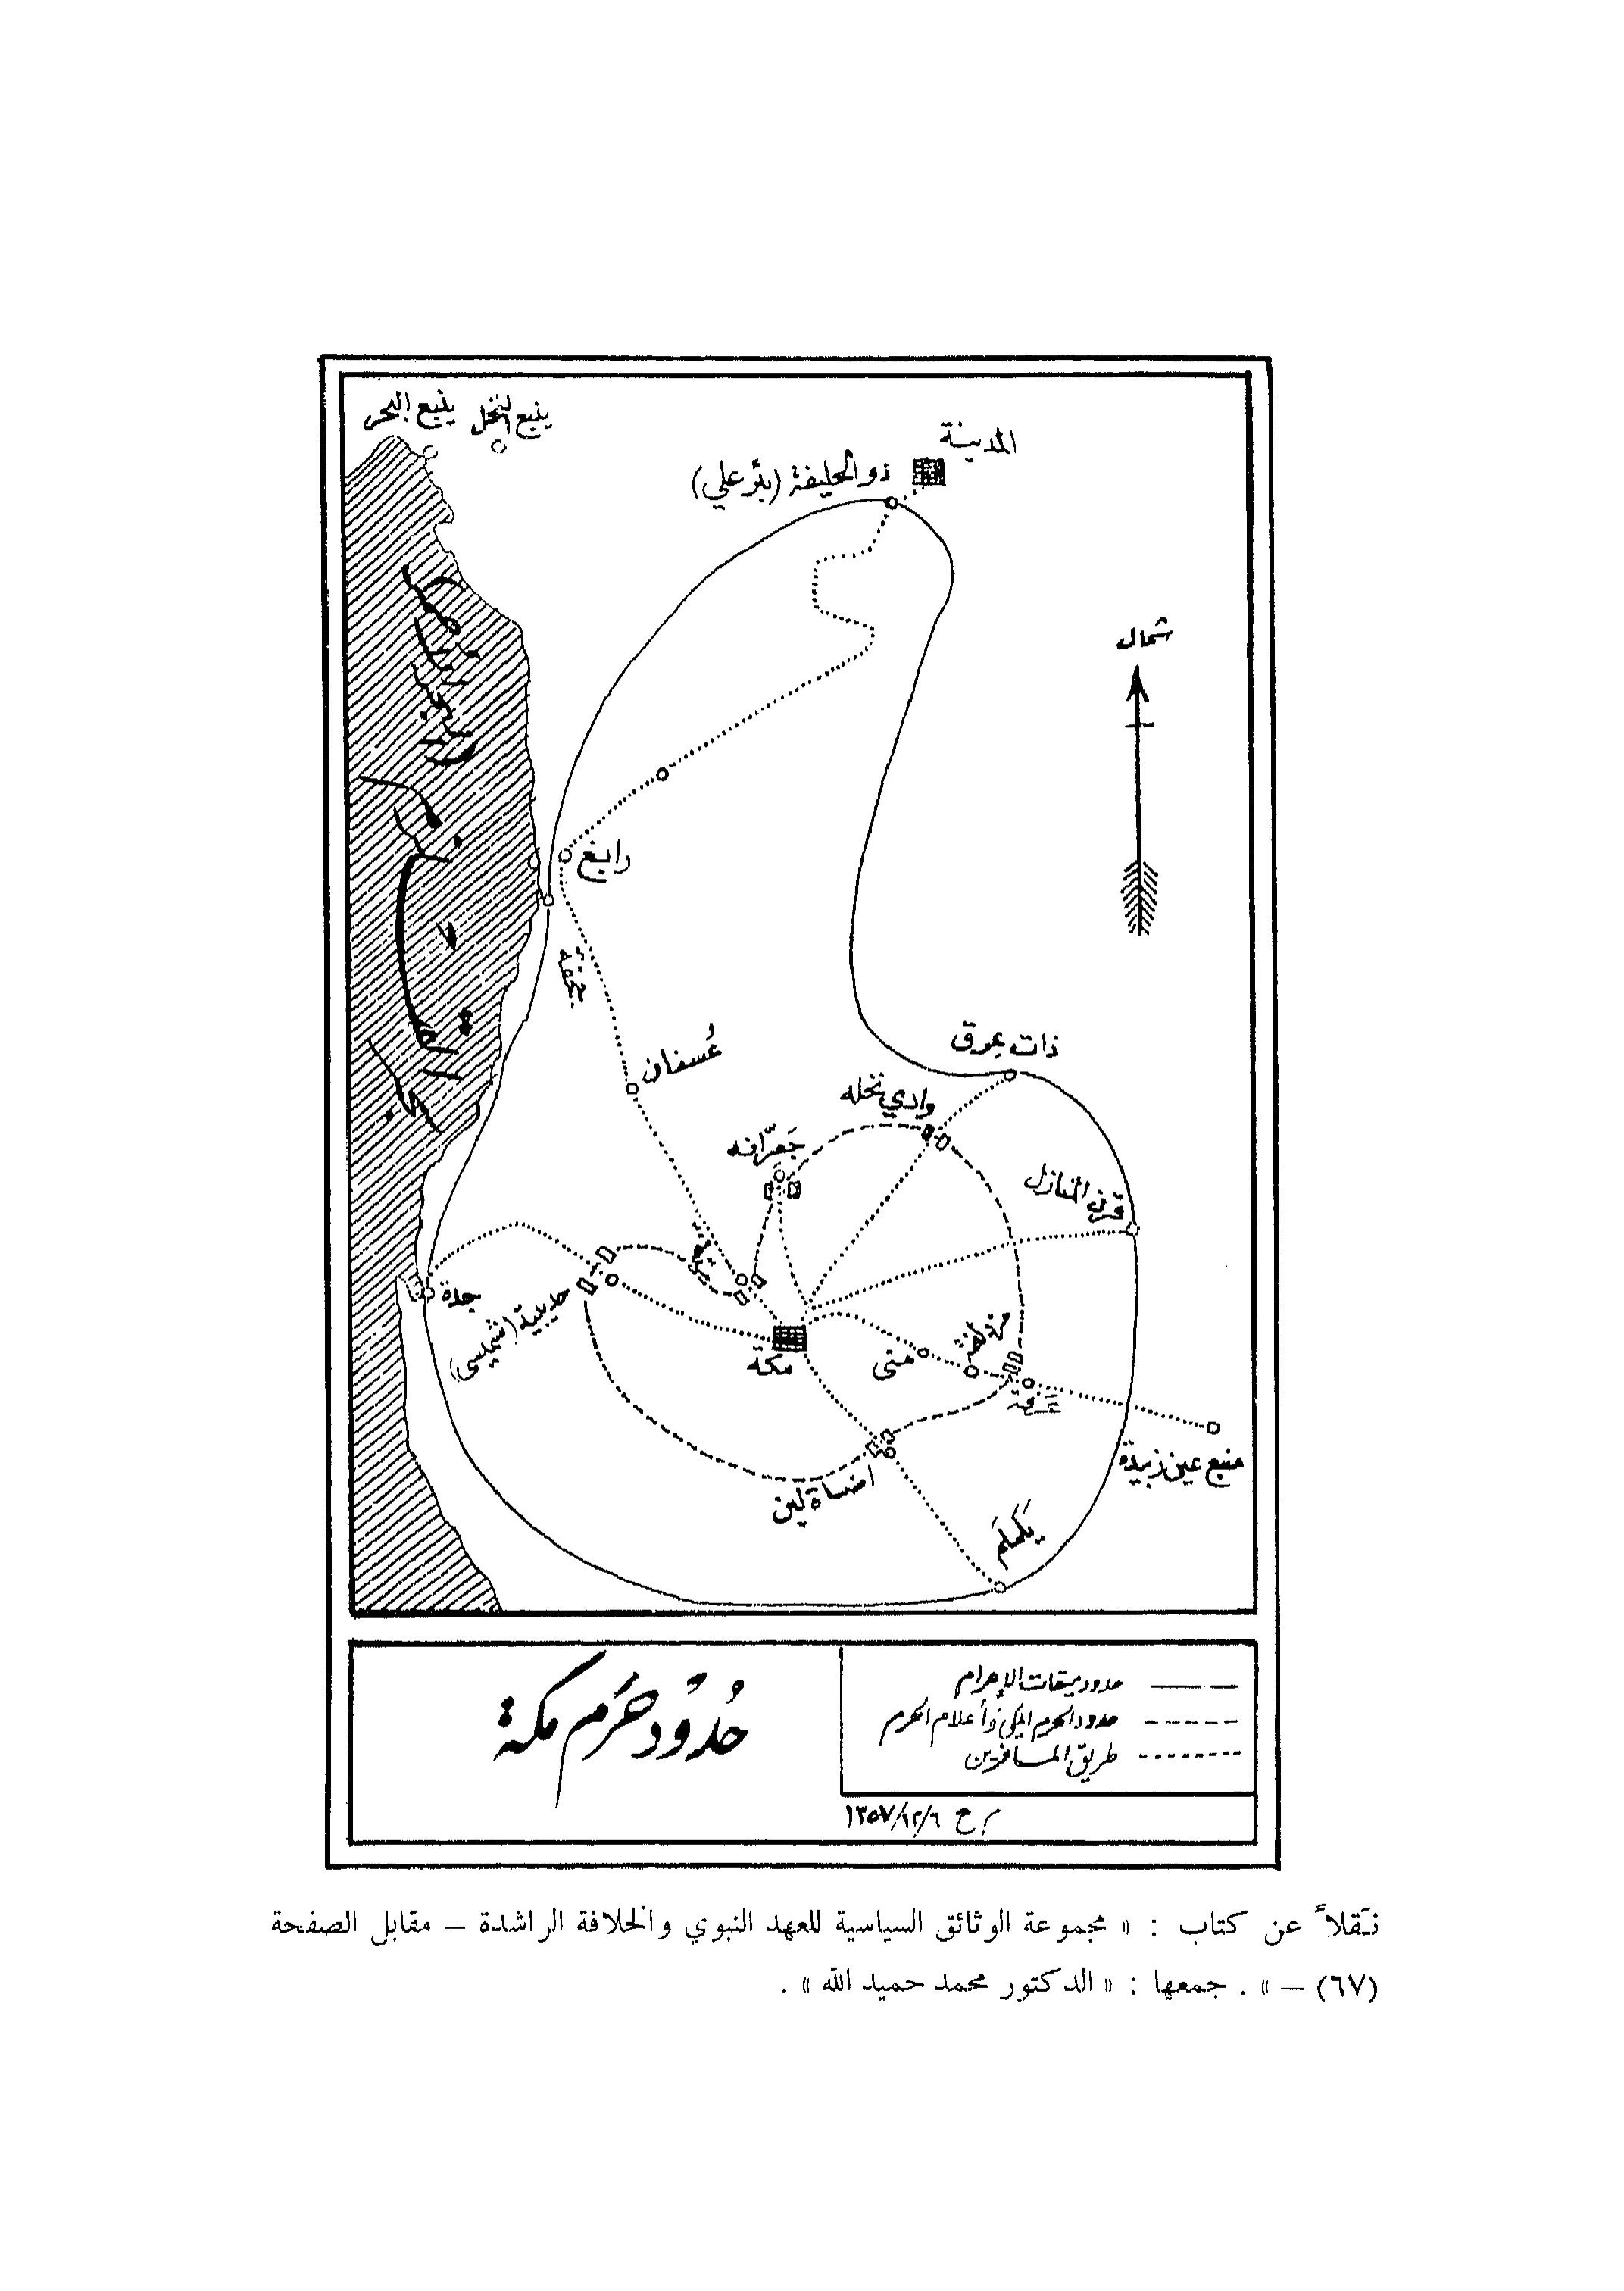 ينبع البحر
ينبع النخل
المدينة
ذو الحليفة (بئر علي)
شمال
رابغ
جحفة
عُسفان
ذات عِرق
وادي نخله
جَعرّانه
قرن المنازل
جدة
حديبية (شميسي)
مكة
منى
مزدلفة
عرفة
منبع عين زبيدة
اضاة لبن
يَلَملَم
حدود ميقات للإحرام
حدود الحرم المكي وأعلام الحرم
طريق المسافرين
حُدُوُد حَرَم مكة
م ح ١٣٥٧/١٢/٦
نَقلاً عن كتاب : « مجموعة الوثائق السياسية للعهد النبوي والخلافة الراشدة – مقابل الصفحة
(٦٧) – » . جمعها : « الدكتور محمد حميد الله » .